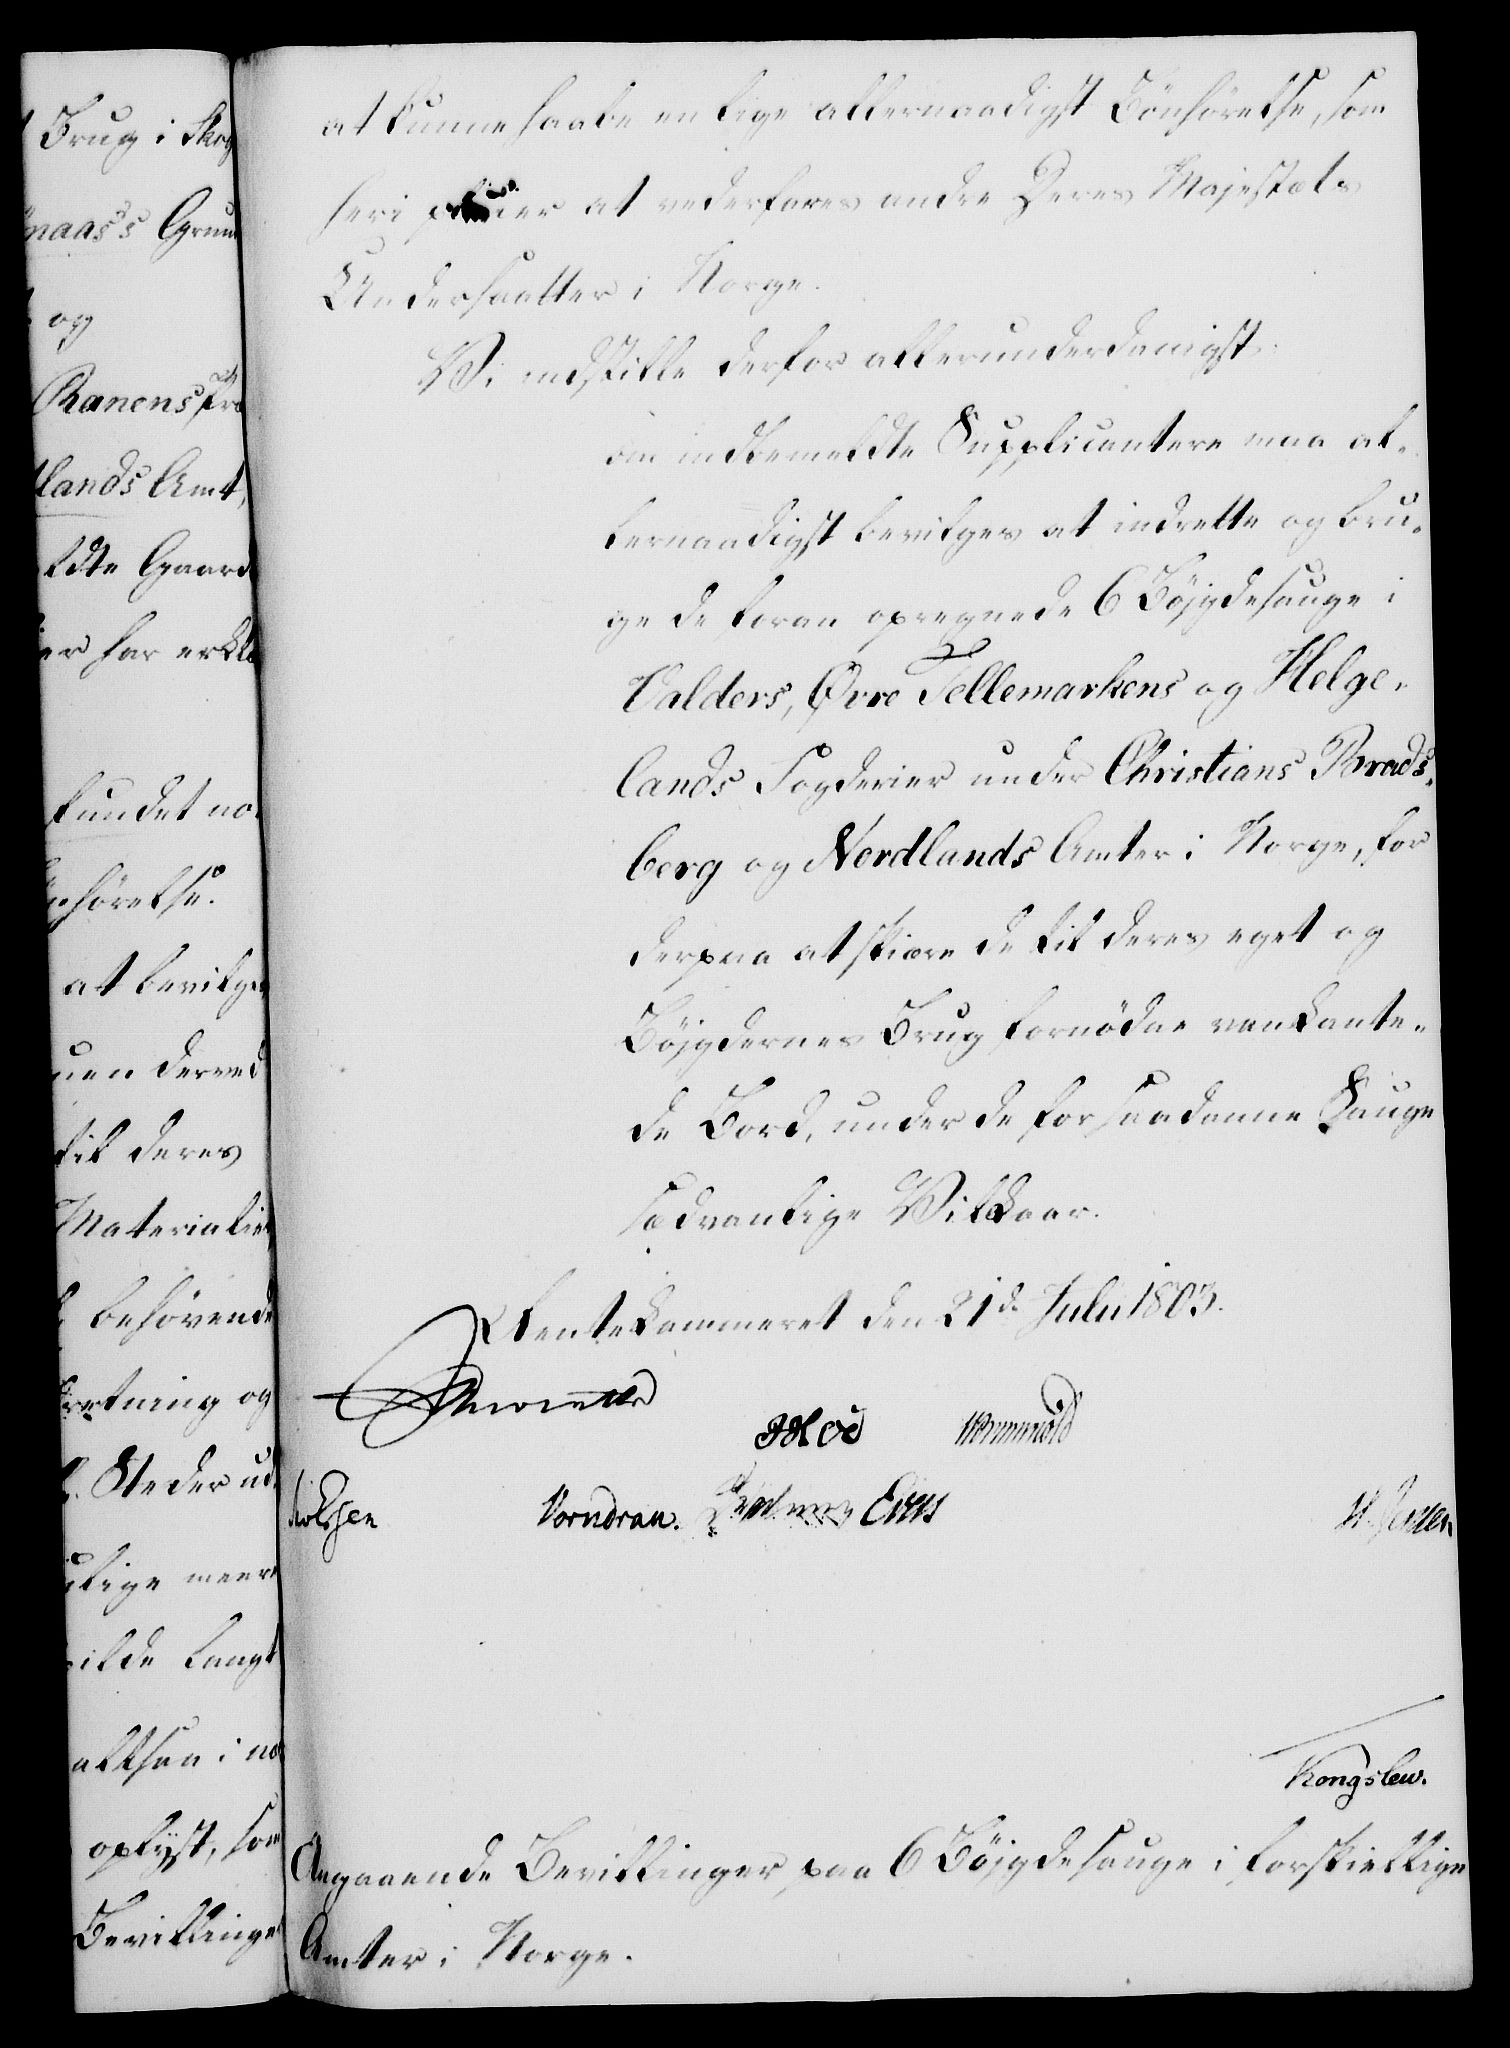 Brug i Skog
naas's Grun
og
Ranens Præ
lands Amt,
ldte Gaard
er har erklæ
fundet no
hörelse.
at bevilges
uen derved
til deres
Materialier
behövende
retning og
Steder ud
lige meere
ilde langt
altsaa i no
oplyst, som
Bevillinger
at kunne haabe en lige allernaadigst Bönhörelse, som
heri pleier at vederfares andre Deres Majestæts
Undersaatter i Norge.
Vi indstille derfor allerunderdanigst:
om indbemeldte Supplicantere maa al-
lernaadigst bevilges at indrette og bru-
ge de foran opregnede 6 Böjgdesauge i
Valders, Øvre Tellemarkens og Helge-
lands Fogderier under Christians Brads-
berg og Nordlands Amter i Norge, for
derpaa at skiære de til deres eget og
Böjgdernes Brug fornödne vankante-
de Bord, under de for saadanne Sauge
sædvanlige Vilkaar.
Rentekammeret den 21de Julii 1803.
Vorndran.
Kongslew.
Angaaende Bevillinger paa 6 Böjgdesauge i forskiellige
Amter i Norge.